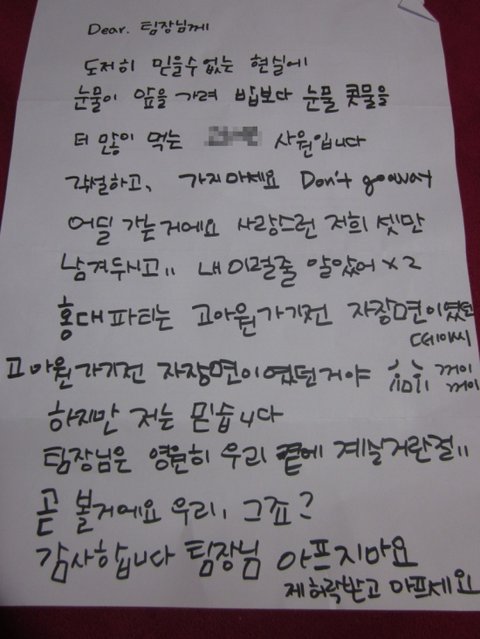 Dear. 팀장님께
도저히 믿을수없는 현실에
눈물이 앞을 가려 밥보다 눈물 콧물을
더 많이 먹는 사원입니다
각설하고, 가지마세요 Don't goaway
어딜 갔는거에요 사랑스런 저희 셋만
남겨두시고!! 내 이럴줄 알았어 x2
홍대파티는 고아원가기전 자장면이였던
고아원가기전 자장면이였던거야 꺼이
꺼이
하지만 저는 믿습니다
팀장님은 영원히 우리 곁에 계실거란걸!!
곧 볼거에요 우리, 그죠?
감사합니다 팀장님 아프지마요
제허락받고 아프세요